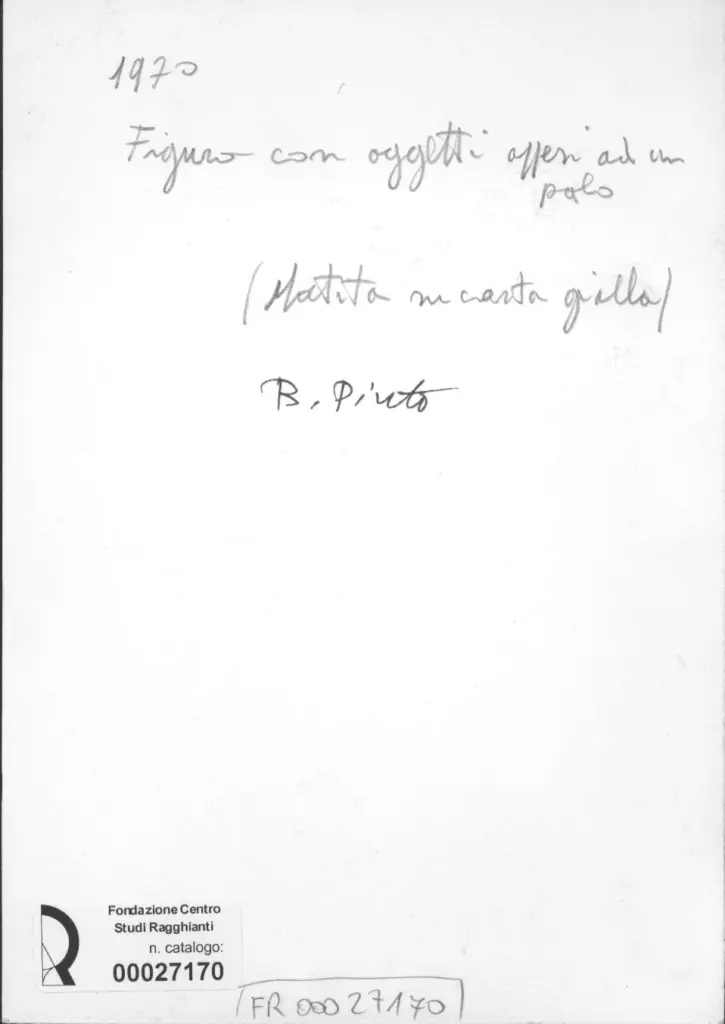 1970
Figura con oggetti appesi ad un
palo
(Matita su carta gialla)
B. Pinto
Fondazione Centro
Studi Ragghianti
n. catalogo:
00027170
FR 00027170